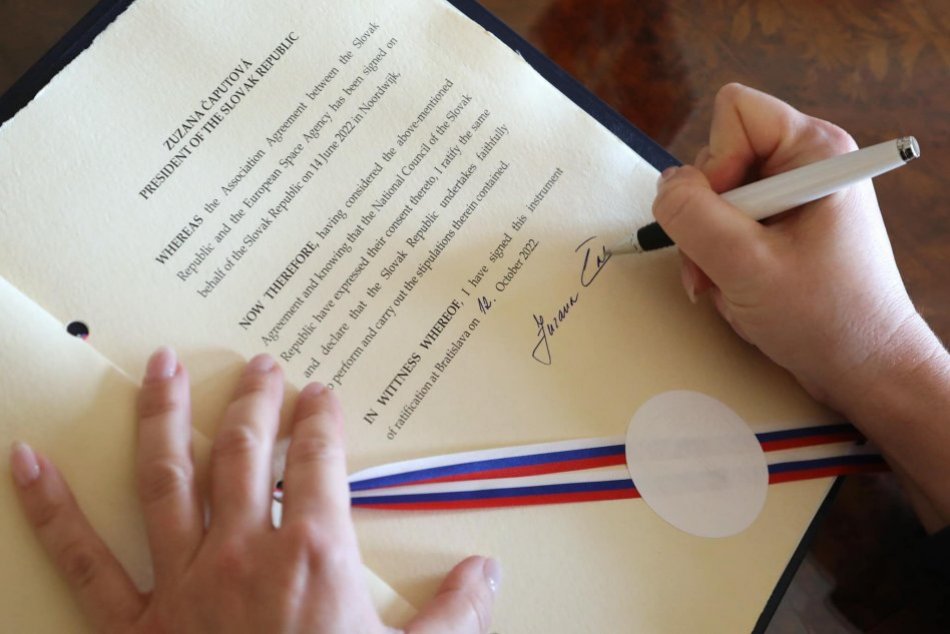 ZUZANA ČAPUTOVÁ
PRESIDENT OF THE SLOVAK REPUBLIC
WHEREAS the Association Agreement between the Slovak
Republic and the European Space Agency has been signed on
behalf of the Slovak Republic on 14 June 2022 in Noordwijk,
NOW THEREFORE, having considered the above-mentioned
Agreement and knowing that the National Council of the Slovak
Republic have expressed their consent thereto, I ratify the same
and declare that the Slovak Republic undertakes faithfully
o perform and carry out the stipulations therein contained.
IN WITTNESS WHEREOF, I have signed this instrument
of ratification at Bratislava on 12. October 2022.
Zuzana Čap